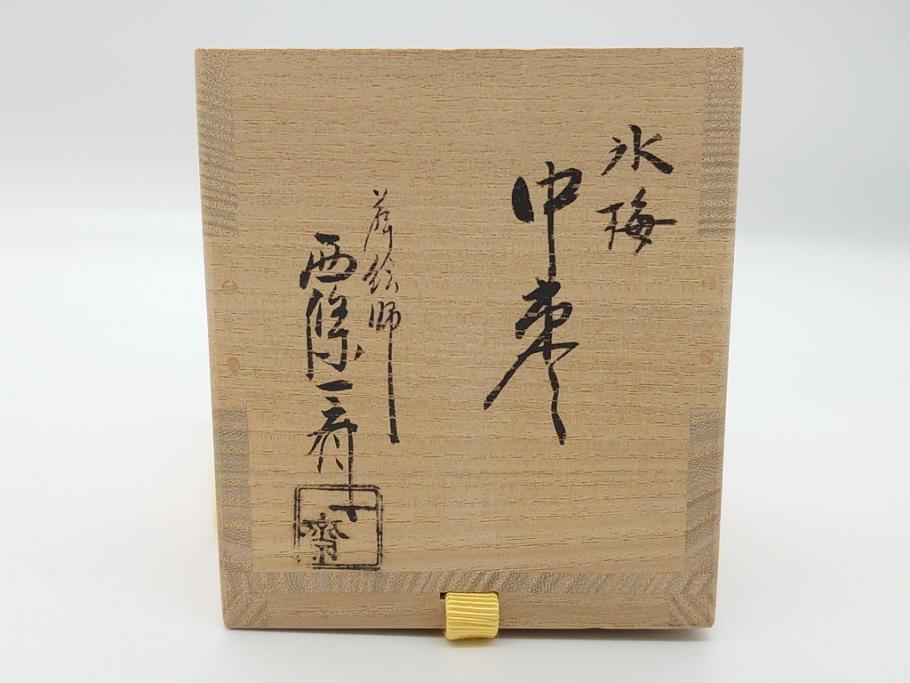 氷梅
中棗
蒔絵師
西條一斎
一斎